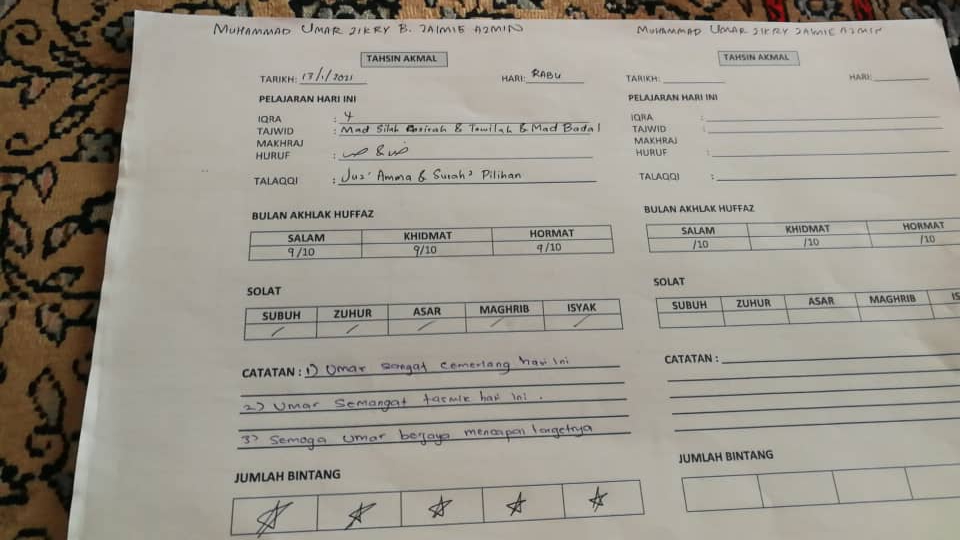 MUHAMMAD UMAR ZIKRY B. JAIMIE AZMIN
TAHSIN AKMAL
TARIKH: 17/1/2021 HARI: RABU
PELAJARAN HARI INI
IQRA : 4
TAJWID : Mad Silah Qasirah & Towilah & Mad Badal
MAKHRAJ
HURUF : ص & ض
TALAQQI : Juz' Amma & Surah² Pilihan
BULAN AKHLAK HUFFAZ
SALAM KHIDMAT HORMAT
9/10 9/10 9/10
SOLAT
SUBUH ZUHUR ASAR MAGHRIB ISYAK
/ / / / /
CATATAN : 1) Umar sangat cemerlang hari ini
2) Umar Semangat tasmik hari ini .
3) Semoga Umar berjaya mencapai
JUMLAH BINTANG
MUHAMMAD UMAR ZIKRY JAIMIE AZMIN
TAHSIN AKMAL
TARIKH: HARI:
PELAJARAN HARI INI
IQRA :
TAJWID :
MAKHRAJ
HURUF :
TALAQQI :
BULAN AKHLAK HUFFAZ
SALAM KHIDMAT HORMAT
/10 /10 /10
SOLAT
SUBUH ZUHUR ASAR MAGHRIB IS
CATATAN :
JUMLAH BINTANG